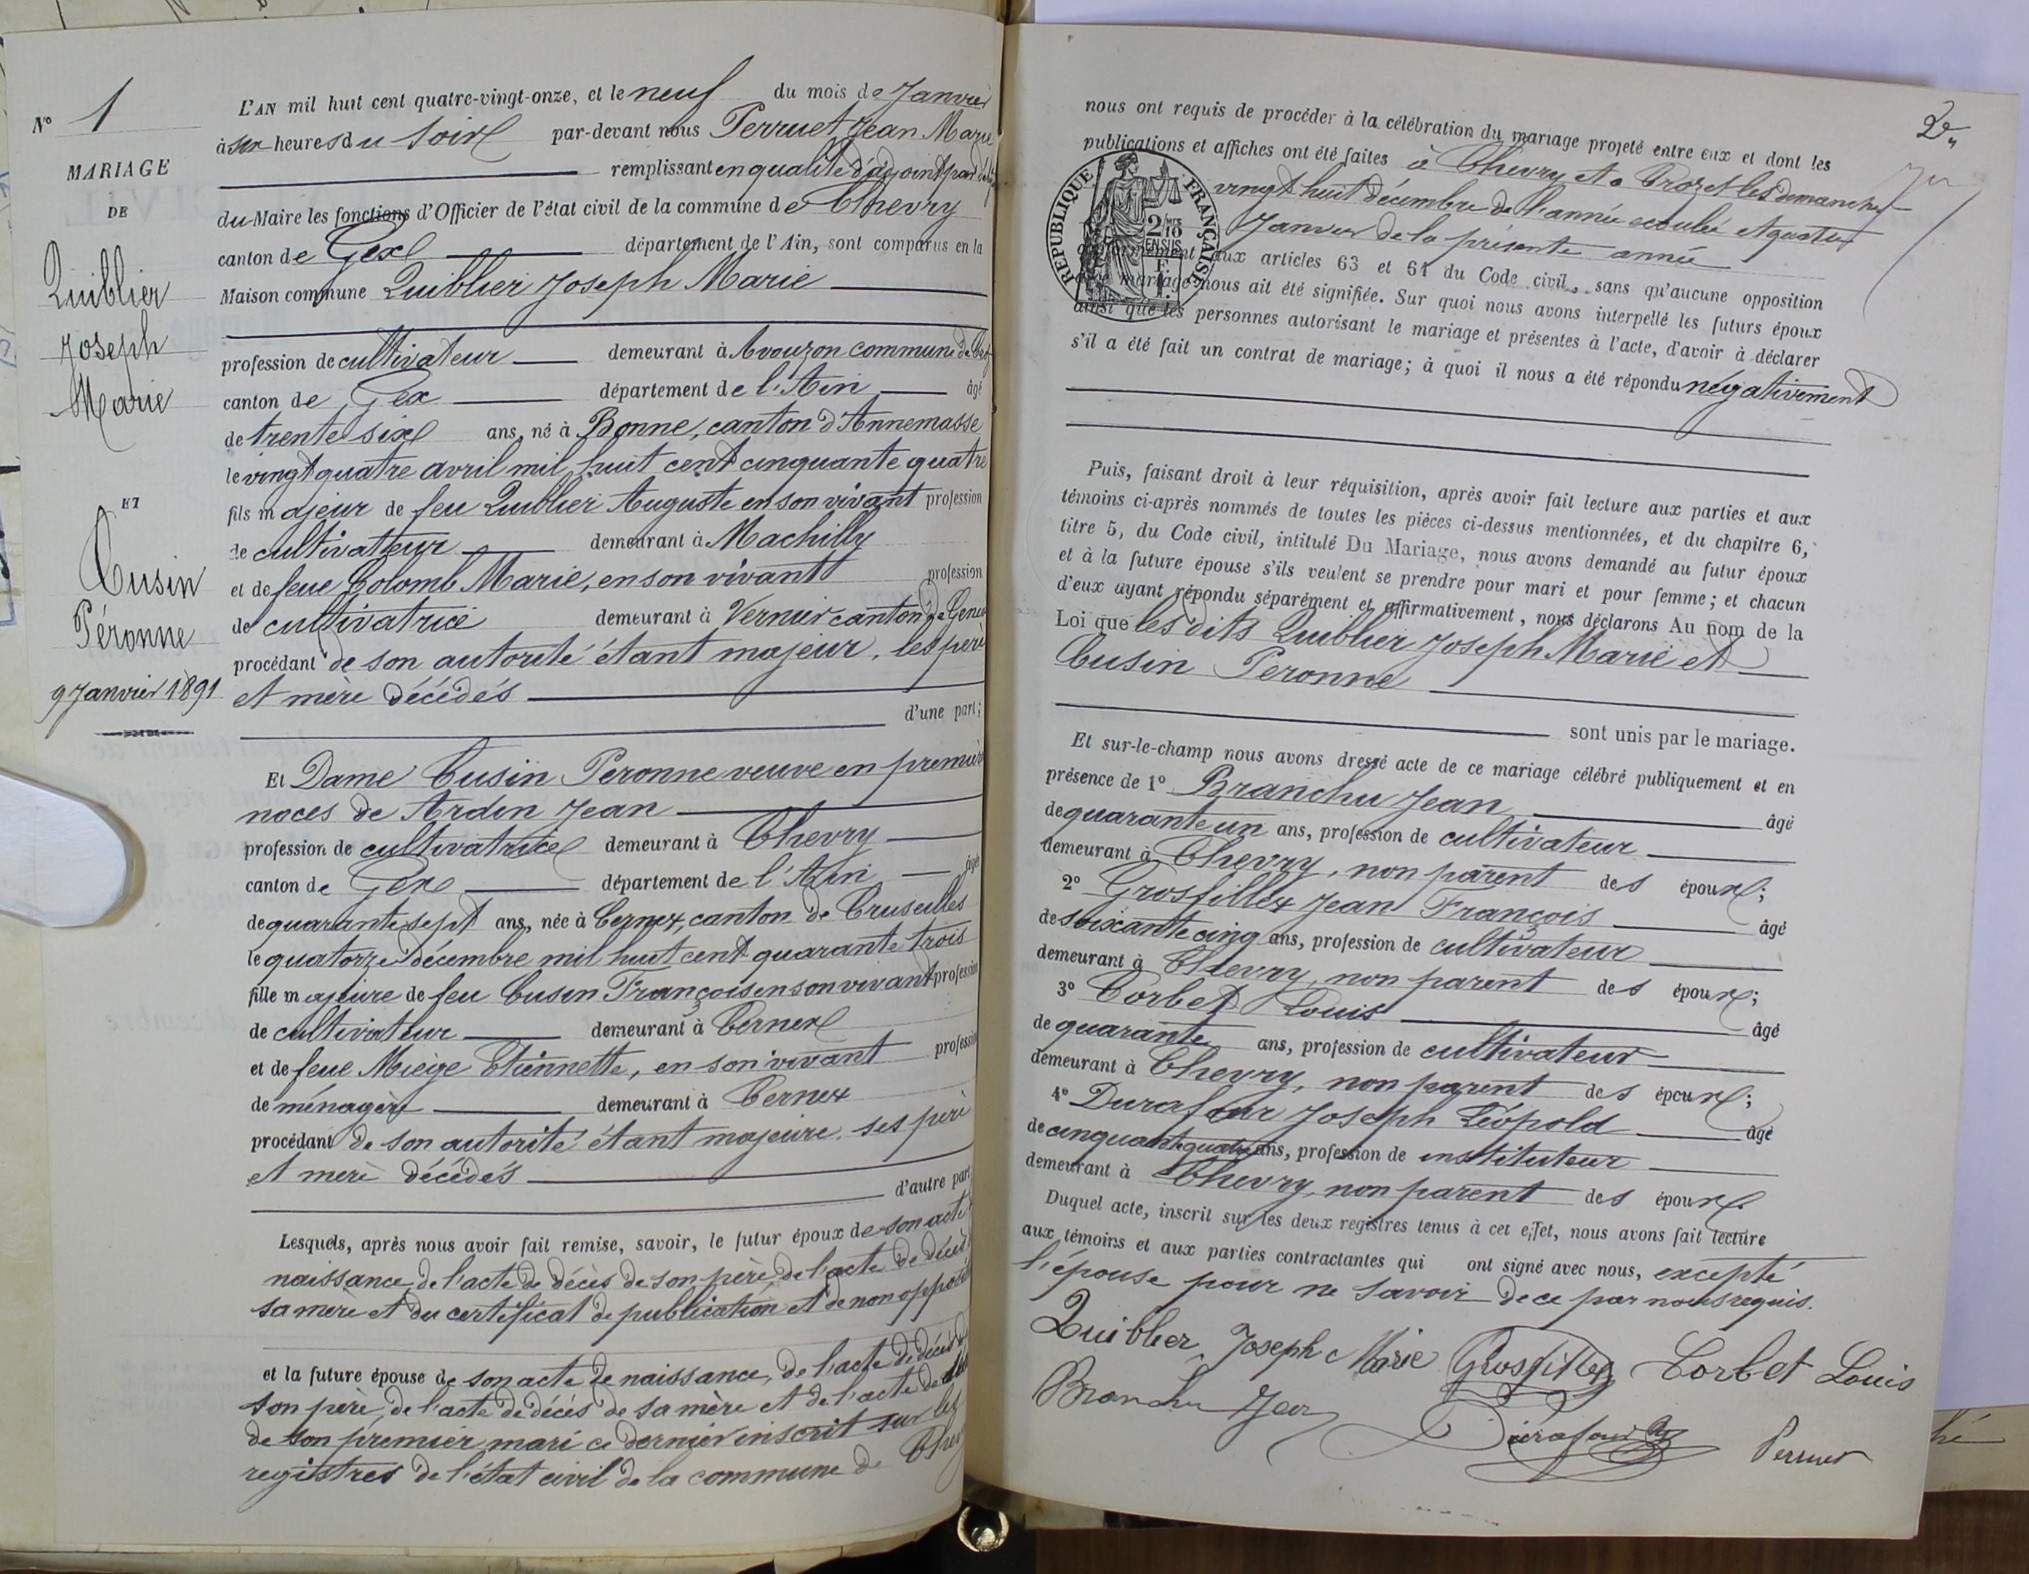 N° 1
MARIAGE
DE
Quiblier
Joseph
Marie
ET
Cusin
Péronne
9 Janvier 1891
L'AN mil huit cent quatre-vingt-onze, et le neuf du mois de Janvier
à six heures du soir par-devant nous Perruet Jean Marie
remplissant en qualité d'adjoint par
du Maire les fonctions d'Officier de l'état civil de la commune de Chevry
canton de Gex département de l'Ain, sont comparus en la
Maison commune Quiblier Joseph Marie
profession de cultivateur demeurant à Avouzon commune de
canton de Gex département de l'Ain âgé
de trente six ans, né à Bonne, canton d'Annemasse
le vingt quatre avril mil huit cent cinquante quatre
fils majeur de feu Quiblier Auguste en son vivant profession
de cultivateur demeurant à Machilly
et de feue Colomb Marie, en son vivant profession
de cultivatrice demeurant à Vernier canton de Genève
procédant de son autorité étant majeur, les père
et mère décédés
d'une part;
Et Dame Cusin Peronne veuve en première
noces de Ardin Jean
profession de cultivatrice demeurant à Chevry
canton de Gex département de l'Ain âgée
de quarante sept ans, née à Cernex, canton de Cruseilles
le quatorze décembre mil huit cent quarante trois
fille majeure de feu Cusin François en son vivant profession
de cultivateur demeurant à Cernex
et de feue Miège Etiennette, en son vivant profession
de ménagère demeurant à Cernex
procédant de son autorité étant majeure. ses père
et mère décédés
d'autre part
Lesquels, après nous avoir fait remise, savoir, le futur époux de son acte
naissance, de l'acte de décès de son père, de l'acte de décès
sa mère et du certificat de publication et de non opposition
et la future épouse de son acte de naissance, de l'acte de décès de
son père, de l'acte de décès de sa mère et de l'acte de décès
de son premier mari ce dernier inscrit sur les
registres de l'état civil de la commune de Chev
2
nous ont requis de procéder à la célébration du mariage projeté entre eux et dont les
publications et affiches ont été faites à Chevry et à Crozet les dimanches
vingt huit décembre de l'année écoulée et quatre
Janvier de la présente année
aux articles 63 et 64 du Code civil, sans qu'aucune opposition
mariage nous ait été signifiée. Sur quoi nous avons interpellé les futurs époux
ainsi que les personnes autorisant le mariage et présentes à l'acte, d'avoir à déclarer
s'il a été fait un contrat de mariage; à quoi il nous a été répondu négativement
RÉPUBLIQUE FRANÇAISE
2/10 EN SUS
Puis, faisant droit à leur réquisition, après avoir fait lecture aux parties et aux
témoins ci-après nommés de toutes les pièces ci-dessus mentionnées, et du chapitre 6,
titre 5, du Code civil, intitulé Du Mariage, nous avons demandé au futur époux
et à la future épouse s'ils veulent se prendre pour mari et pour femme; et chacun
d'eux ayant répondu séparément et affirmativement, nous déclarons Au nom de la
Loi que les dits Quiblier Joseph Marie et
Cusin Peronne
sont unis par le mariage.
Et sur-le-champ nous avons dressé acte de ce mariage célébré publiquement et en
présence de 1° Branchu Jean âgé
de quarante un ans, profession de cultivateur
demeurant à Chevry, non parent des époux;
2° Grosfillex Jean François âgé
de soixante cinq ans, profession de cultivateur
demeurant à Chevry, non parent des époux;
3° Corbet Louis âgé
de quarante ans, profession de cultivateur
demeurant à Chevry, non parent des époux;
4° Durafour Joseph Léopold âgé
de cinquante quatre ans, profession de instituteur
demeurant à Chevry, non parent des époux
Duquel acte, inscrit sur les deux registres tenus à cet effet, nous avons fait lecture
aux témoins et aux parties contractantes qui ont signé avec nous, excepté
l'épouse pour ne savoir de ce par nous requis.
Quiblier Joseph Marie Grosfillex Corbet Louis
Branchu Jean Durafour Perruet